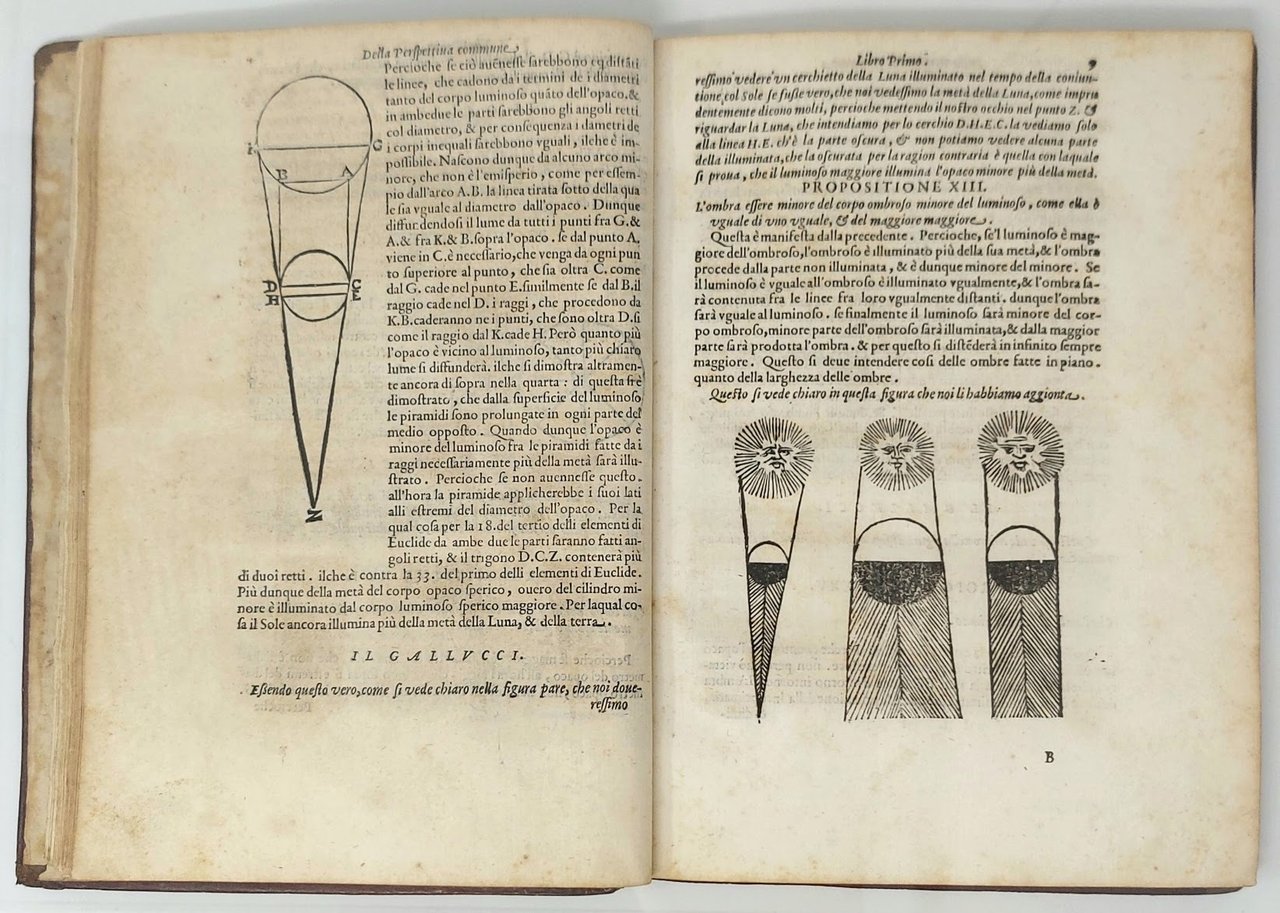 Della Perspettiua commune
Percioche se ciò auenesse sarebbono eq distāti
le linee, che cadono da i termini de i diametri
tanto del corpo luminoso quāto dell'opaco. &
in ambedue le parti sarebbono gli angoli retti
col diametro, & per consequenza i diametri de
i corpi inequali sarebbono vguali, ilche è im-
possibile. Nascono dunque da alcuno arco mi-
nore, che non è l'emisperio, come per essem-
pio dall'arco A.B. la linea tirata sotto della qua
le sia vguale al diametro dall'opaco. Dunque
diffundendosi il lume da tutti i punti fra G. &
A. & fra K. & B. sopra l'opaco. se dal punto A.
viene in C. è necessario, che venga da ogni pun
to superiore al punto, che sia oltra C. come
dal G. cade nel punto E. similmente se dal B. il
raggio cade nel D. i raggi, che procedono da
K.B. caderanno ne i punti, che sono oltra D. si
come il raggio dal K. cade H. Però quanto più
l'opaco è vicino al luminoso, tanto più chiaro
lume si diffunderà. ilche si dimostra altramen-
te ancora di sopra nella quarta: di questa si è
dimostrato, che dalla superficie del luminoso
le piramidi sono prolungate in ogni parte del
medio opposto. Quando dunque l'opaco è
minore del luminoso fra le piramidi fatte da i
raggi necessariamente più della metà sarà illu-
strato. Percioche se non auennesse questo.
all'hora la piramide applicherebbe i suoi lati
alli estremi del diametro dell'opaco. Per la
qual cosa per la 18. del tertio delli elementi di
Euclide da ambe due le parti saranno fatti an-
goli retti, & il trigono D.C.Z. contenerà più
di duoi retti. ilche è contra la 33. del primo delli elementi di Euclide.
Più dunque della metà del corpo opaco sperico, ouero del cilindro mi-
nore è illuminato dal corpo luminoso sperico maggiore. Per laqual co-
sa il Sole ancora illumina più della metà della Luna, & della terra.
G
B A
D C
H E
Z
IL GALLVCCI.
Essendo questo vero, come si vede chiaro nella figura pare, che noi doue-
ressimo
Libro Primo. 9
ressimo vedere vn cerchietto della Luna illuminato nel tempo della coniun-
tione col Sole se fusse vero, che noi vedessimo la metà della Luna, come impru
dentemente dicono molti, percioche mettendo il nostro occhio nel punto Z. &
riguardar la Luna, che intendiamo per lo cerchio D.H.E.C. la vediamo solo
alla linea H.E. ch'è la parte oscura, & non potiamo vedere alcuna parte
della illuminata, che la oscurata per la ragion contraria è quella con laquale
si proua, che il luminoso maggiore illumina l'opaco minore più della metà.
PROPOSITIONE XIII.
L'ombra essere minore del corpo ombroso minore del luminoso, come ella è
vguale di vno vguale, & del maggiore maggiore.
Questa è manifesta dalla precedente. Percioche, se'l luminoso è mag-
giore dell'ombroso, l'ombroso è illuminato più della sua metà, & l'ombra
procede dalla parte non illuminata, & è dunque minore del minore. Se
il luminoso è vguale all'ombroso è illuminato vgualmente, & l'ombra sa-
rà contenuta fra le linee fra loro vgualmente distanti. dunque l'ombra
sarà vguale al luminoso. se finalmente il luminoso sarà minore del cor-
po ombroso, minore parte dell'ombroso sarà illuminata, & dalla maggior
parte sarà prodotta l'ombra. & per questo si distēderà in infinito sempre
maggiore. Questo si deue intendere così delle ombre fatte in piano.
quanto della larghezza delle ombre.
Questo si vede chiaro in questa figura che noi li habbiamo aggionta.
B